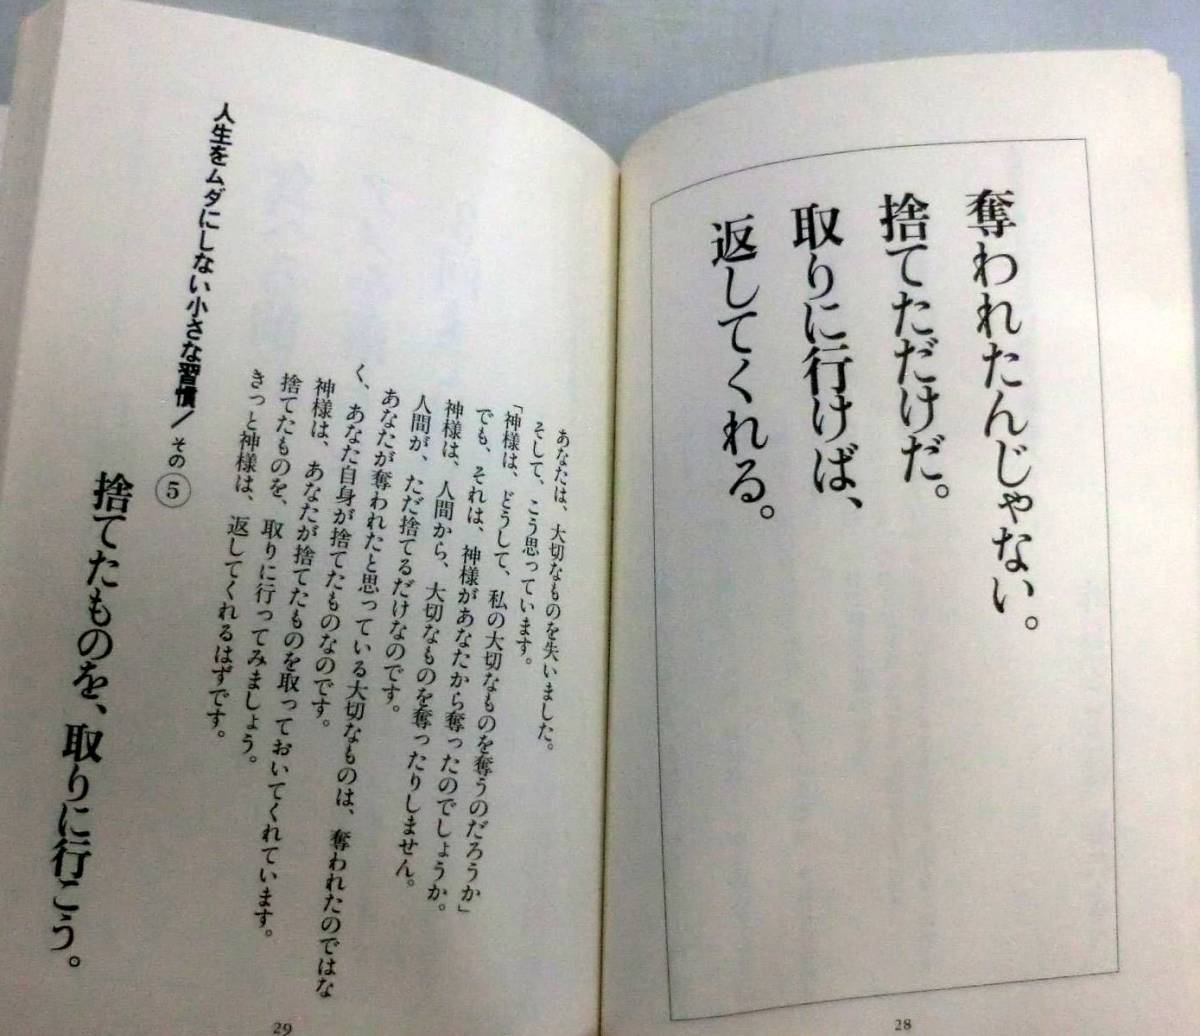 奪われたんじゃない。
捨てただけだ。
取りに行けば、
返してくれる。
28
あなたは、大切なものを失いました。
そして、こう思っています。
「神様は、どうして、私の大切なものを奪うのだろうか」
でも、それは、神様があなたから奪ったのでしょうか。
神様は、人間から、大切なものを奪ったりしません。
人間が、ただ捨てるだけなのです。
あなたが奪われたと思っている大切なものは、奪われたのではな
く、あなた自身が捨てたものなのです。
神様は、あなたが捨てたものを取っておいてくれています。
捨てたものを、取りに行ってみましょう。
きっと神様は、返してくれるはずです。
人生をムダにしない小さな習慣/その⑤
捨てたものを、取りに行こう。
29